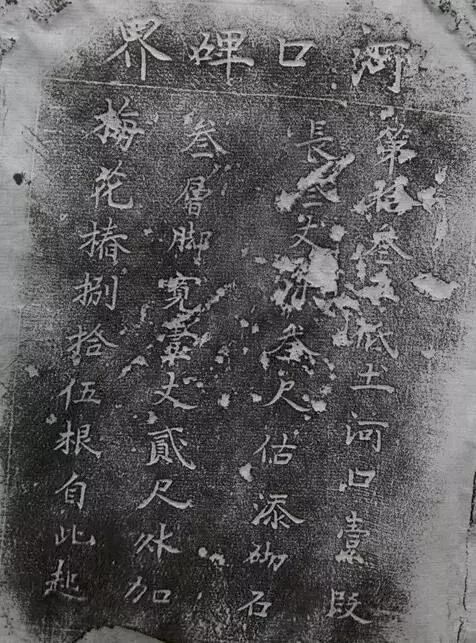 河口碑界
第拾叁低土河口壹段
長丈叁尺估添砌石
叁層脚寬壹丈貳尺外加
梅花椿捌拾伍根自此起